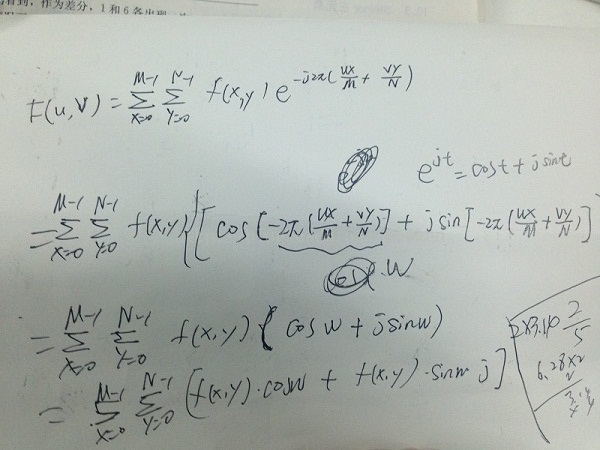 看到，作为差分，1和6各出现
F(u,v) = \sum_{x=0}^{M-1} \sum_{y=0}^{N-1} f(x,y) e^{-j2π(\frac{ux}{M} + \frac{vy}{N})}
e^{jt} = cost + j sint
= \sum_{x=0}^{M-1} \sum_{y=0}^{N-1} f(x,y) {[cos[-2π(\frac{ux}{M} + \frac{vy}{N})] + j sin[-2π(\frac{ux}{M} + \frac{vy}{N})]
W
= \sum_{x=0}^{M-1} \sum_{y=0}^{N-1} f(x,y) · (cosw + jsinw)
= \sum_{x=0}^{M-1} \sum_{y=0}^{N-1} [f(x,y)·cosw + f(x,y)·sinw j]
2x3.14 \frac{2}{5}
6.28x2